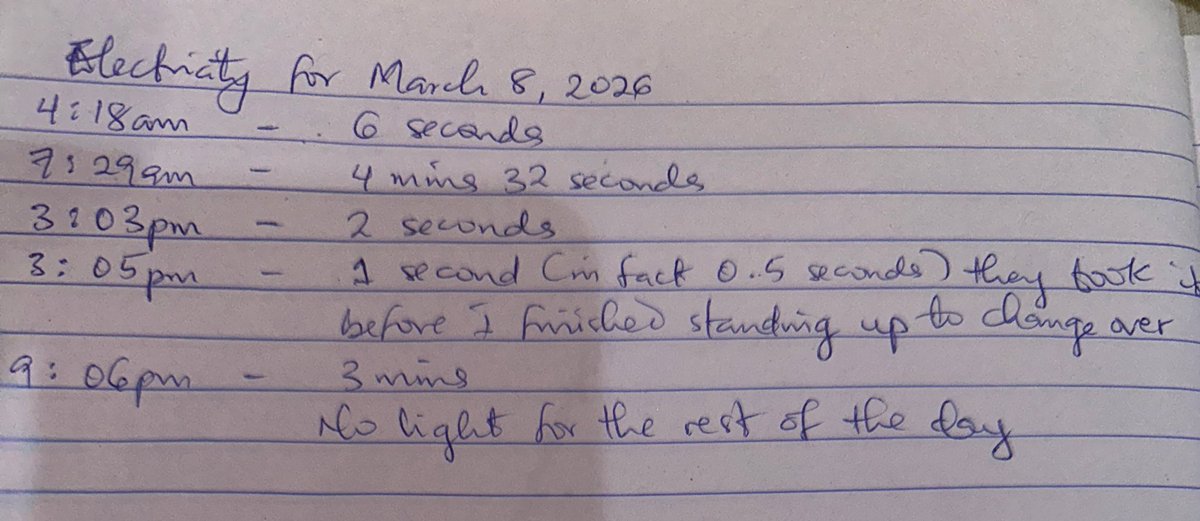 Electricity for March 8, 2026
4:18am - 6 seconds
7:29am - 4 mins 32 seconds
3:03pm - 2 seconds
3:05pm - 1 second (in fact 0.5 seconds) they took it
before I finished standing up to change over
9:06pm - 3 mins
No light for the rest of the day